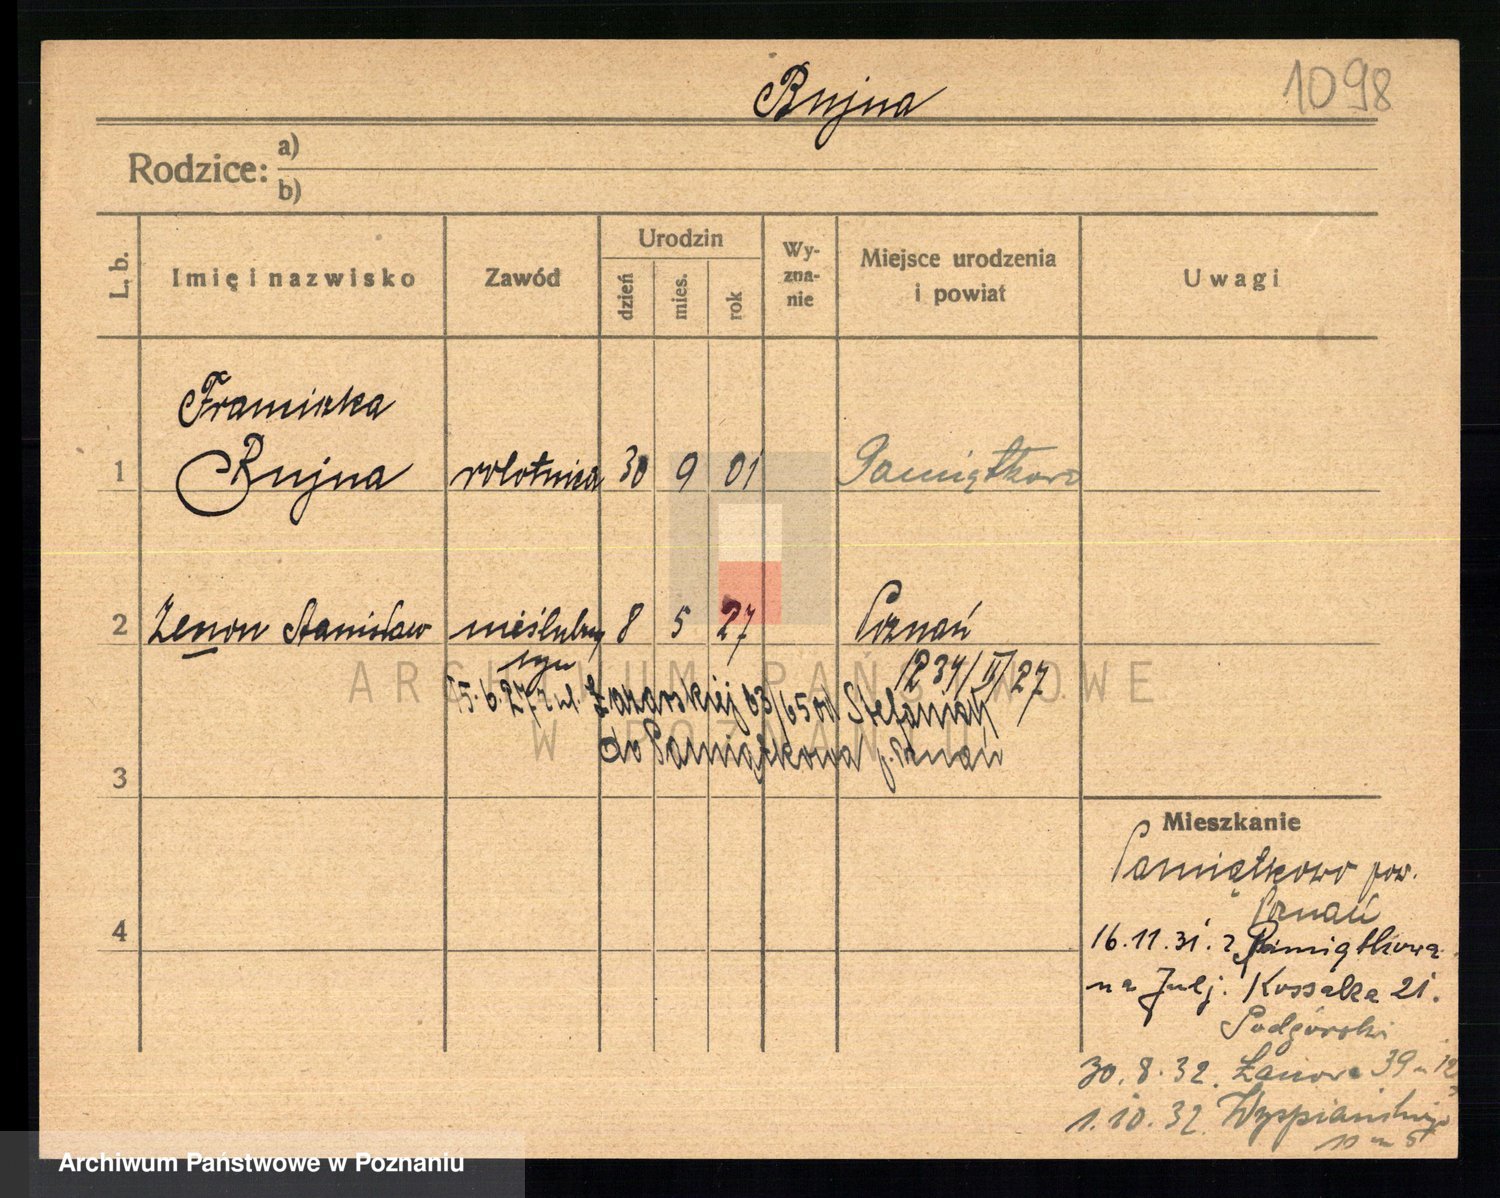 Bujna
1098
Rodzice: a)
b)
L. b.
Imię i nazwisko
Zawód
Urodzin
dzień
mies.
rok
Wy-
zna-
nie
Miejsce urodzenia
i powiat
Uwagi
Franciszka
1 Bujna robotnica 30 9 01 Pamiątkowo
2 Zenon Stanisław nieślubny 8 5 27 Poznań
syn 1234/III/27
15.6.27 z ul. Łazarskiej 63/65 od Stefaniak
do Pamiątkowa p. Poznań
3
4
Mieszkanie
Pamiątkowo pow.
Poznań
16.11.31. z Pamiątkowa
na Julj. Kossaka 21.
Podgórski
30.8.32. Łanowa 39 m 12
1.10.32 Wyspiańskiego
10 m 5
ARCHIWUM PAŃSTWOWE
W POZNANIU
Archiwum Państwowe w Poznaniu